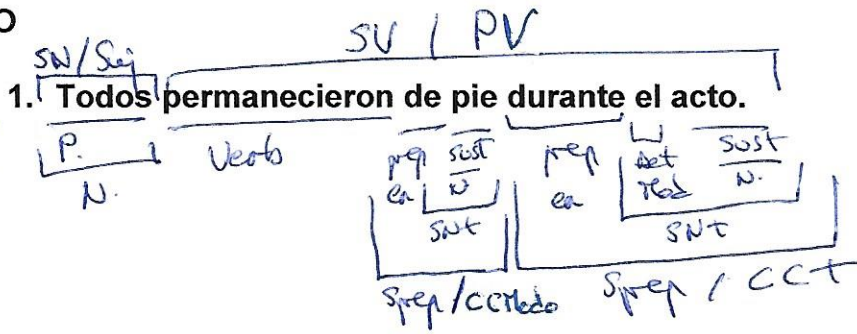 O
SN/Suj SV / PV
1. Todos permanecieron de pie durante el acto.
P. Verb prep sust prep Det sust
N. en N en Mod N.
SNt SNt
Sprep/CCModo Sprep / CCT